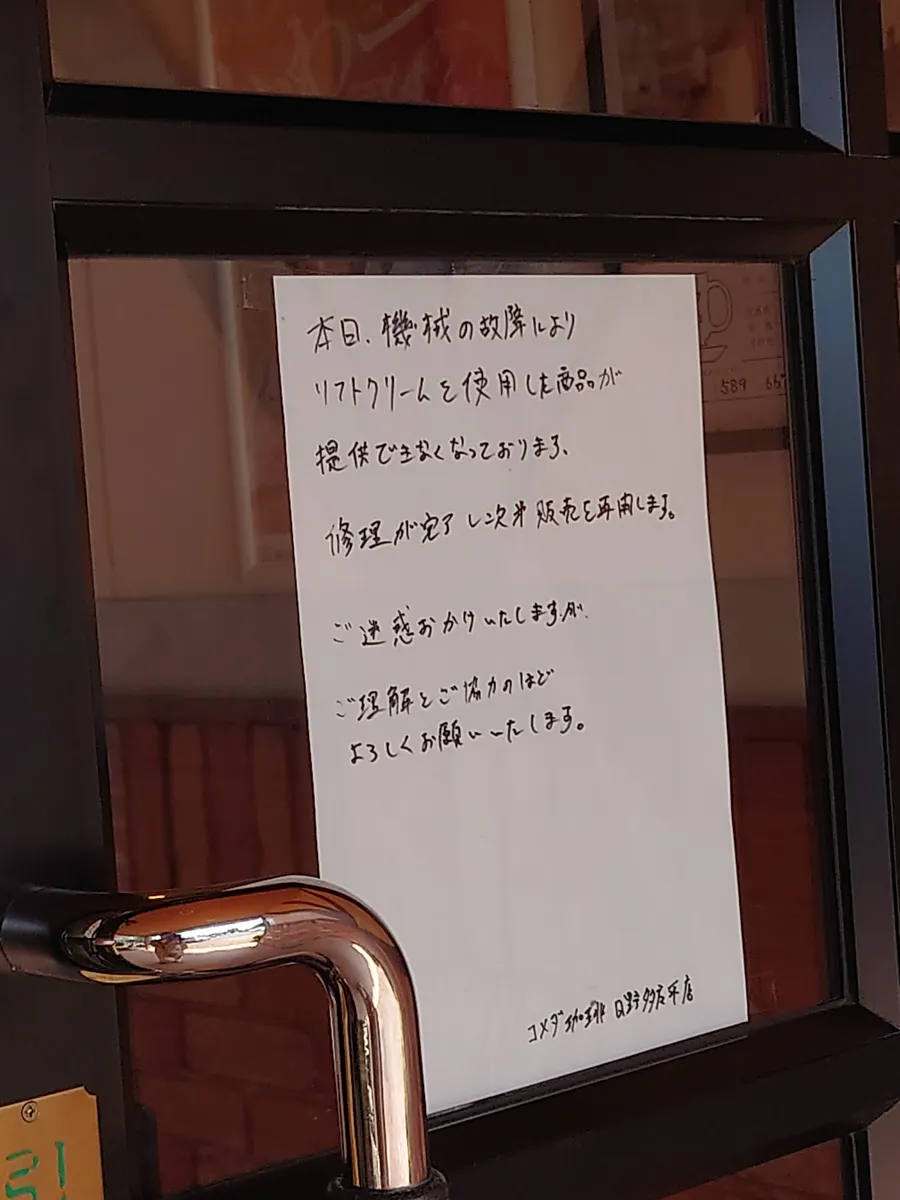 本日、機械の故障により
ソフトクリームを使用した商品が
提供できなくなっております、
修理が完了し次第販売を再開します。
ご迷惑おかけいたしますが、
ご理解とご協力のほど
よろしくお願いいたします。
コメダ珈琲 日野多摩平店
589